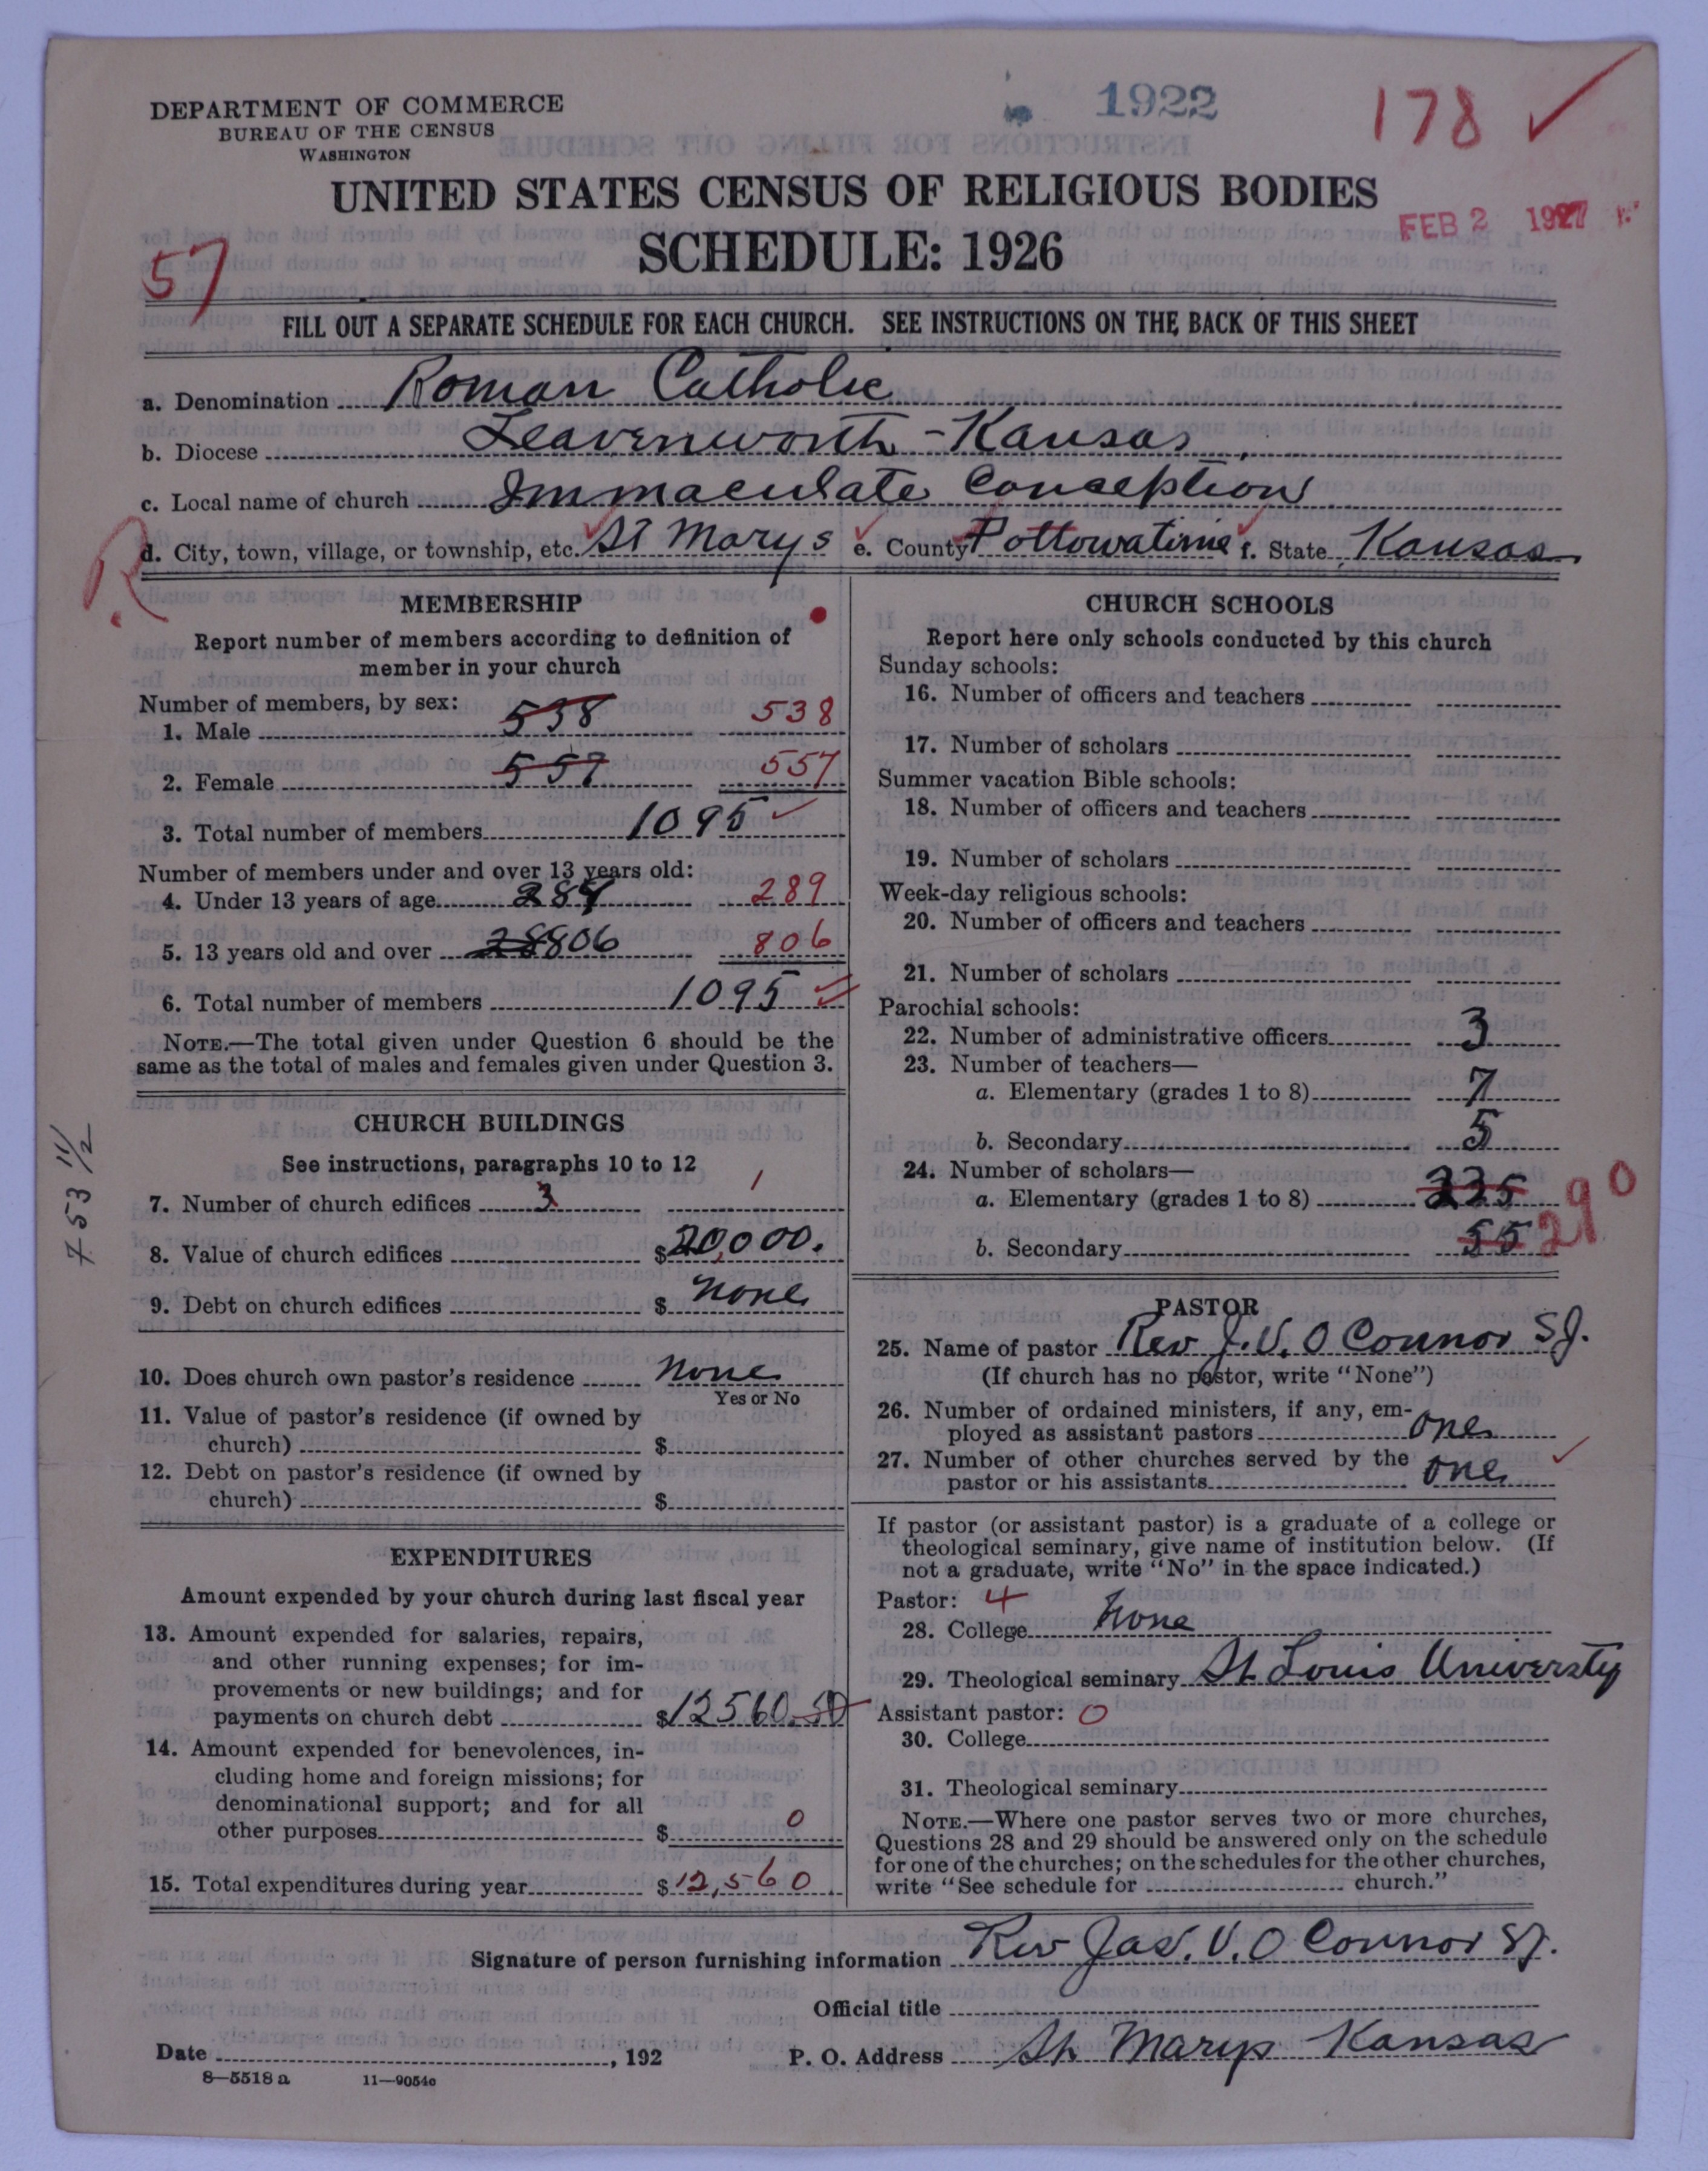 1922
178 ✓
DEPARTMENT OF COMMERCE
BUREAU OF THE CENSUS
WASHINGTON
UNITED STATES CENSUS OF RELIGIOUS BODIES
FEB 2 1927
SCHEDULE: 1926
57
FILL OUT A SEPARATE SCHEDULE FOR EACH CHURCH. SEE INSTRUCTIONS ON THE BACK OF THIS SHEET
a. Denomination Roman Catholic
b. Diocese Leavenworth - Kansas
c. Local name of church Immaculate Conception
d. City, town, village, or township, etc. St Marys e. County Pottowatimie f. State Kansas
R
MEMBERSHIP
Report number of members according to definition of
member in your church
Number of members, by sex:
1. Male 538 538
2. Female 557 557
3. Total number of members 1095
Number of members under and over 13 years old:
4. Under 13 years of age 289 289
5. 13 years old and over 806 806
6. Total number of members 1095
NOTE.—The total given under Question 6 should be the
same as the total of males and females given under Question 3.
CHURCH BUILDINGS
See instructions, paragraphs 10 to 12
7. Number of church edifices 3 1
8. Value of church edifices $20,000.
9. Debt on church edifices $ none
10. Does church own pastor's residence none
Yes or No
11. Value of pastor's residence (if owned by
church) $
12. Debt on pastor's residence (if owned by
church) $
EXPENDITURES
Amount expended by your church during last fiscal year
13. Amount expended for salaries, repairs,
and other running expenses; for im-
provements or new buildings; and for
payments on church debt $12560.50
14. Amount expended for benevolences, in-
cluding home and foreign missions; for
denominational support; and for all
other purposes $ 0
15. Total expenditures during year $12,560
CHURCH SCHOOLS
Report here only schools conducted by this church
Sunday schools:
16. Number of officers and teachers
17. Number of scholars
Summer vacation Bible schools:
18. Number of officers and teachers
19. Number of scholars
Week-day religious schools:
20. Number of officers and teachers
21. Number of scholars
Parochial schools:
22. Number of administrative officers 3
23. Number of teachers—
a. Elementary (grades 1 to 8) 7
b. Secondary 5
24. Number of scholars—
a. Elementary (grades 1 to 8) 235
b. Secondary 55 290
PASTOR
25. Name of pastor Rev J. V. O Connor SJ.
(If church has no pastor, write "None")
26. Number of ordained ministers, if any, em-
ployed as assistant pastors one
27. Number of other churches served by the
pastor or his assistants one
If pastor (or assistant pastor) is a graduate of a college or
theological seminary, give name of institution below. (If
not a graduate, write "No" in the space indicated.)
Pastor: 4
28. College none
29. Theological seminary St Louis University
Assistant pastor: 0
30. College
31. Theological seminary
NOTE.—Where one pastor serves two or more churches,
Questions 28 and 29 should be answered only on the schedule
for one of the churches; on the schedules for the other churches,
write "See schedule for church."
Signature of person furnishing information Rev Jas. V. O Connor SJ.
Official title
Date , 192 P. O. Address St Marys Kansas
8—5518 a 11—9054c